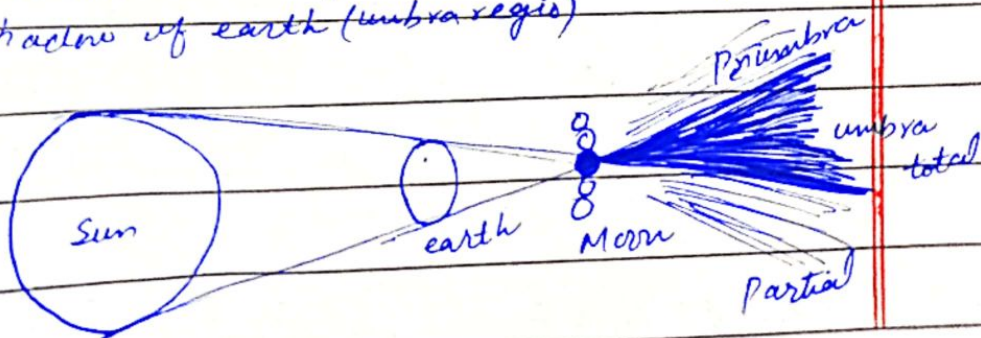 hadow of earth (umbra regio)
Penumbra
umbra
total
Sun
earth
Moon
Partial